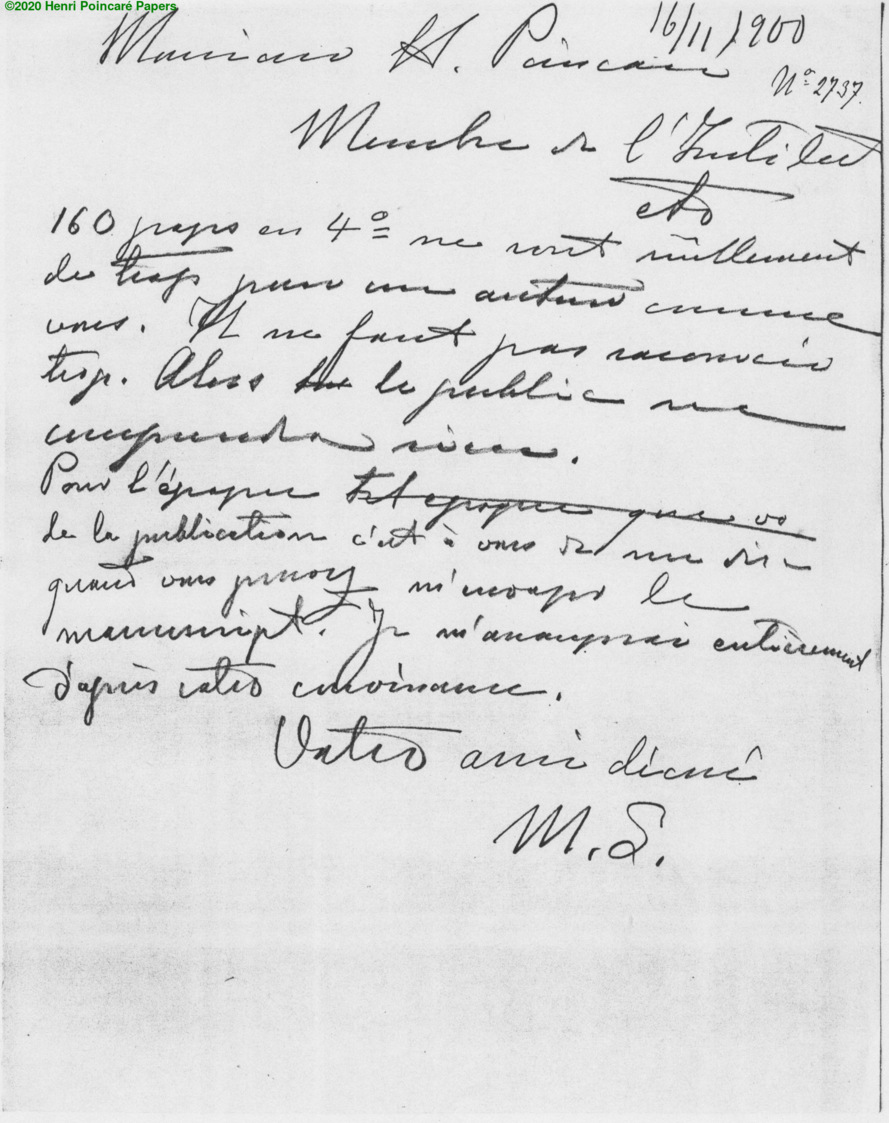 ©2020 Henri Poincaré Papers
16/11/1900
Monsieur H. Poincaré
No 2737.
Membre de l'Institut
etc
160 pages en 4o ne sont nullement
de trop pour un auteur comme
vous. Il ne faut pas raccourcir
trop. Alors le public ne
comprendra rien.
Pour l'époque Cet époque que vo
de la publication c'est à vous de me dire
quand vous pensez m'envoyer le
manuscript. Je m'arrangerai entièrement
d'après votre convenance.
Votre ami dévoué
M. L.